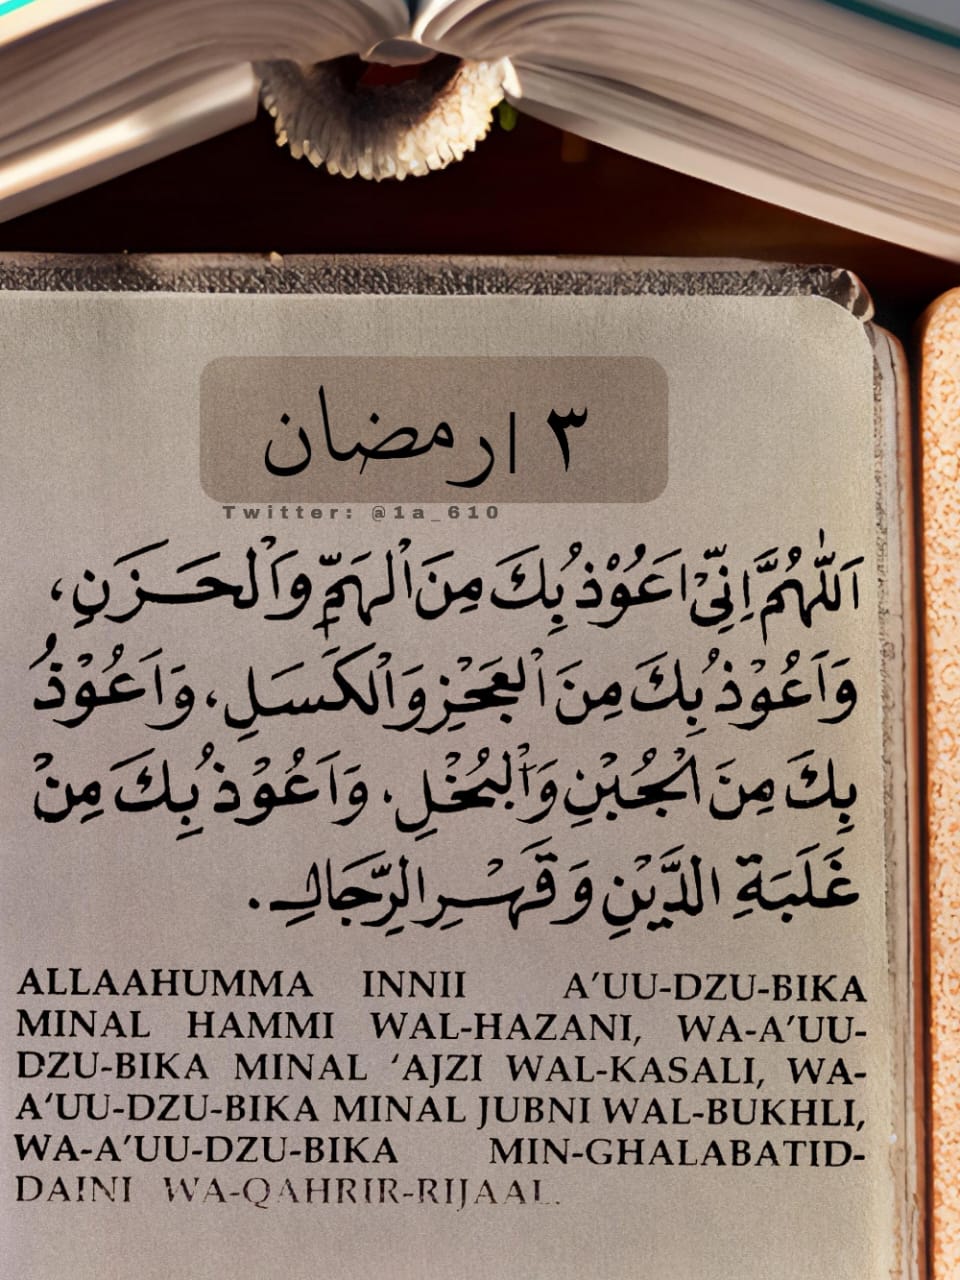 ٣ ارمضان
Twitter: @1a_610
اَللّٰهُمَّ اِنِّىْ اَعُوْذُ بِكَ مِنَ الْهَمِّ وَالْحَزَنِ،
وَاَعُوْذُ بِكَ مِنَ الْعَجْزِ وَالْكَسَلِ، وَاَعُوْذُ
بِكَ مِنَ الْجُبْنِ وَالْبُخْلِ. وَاَعُوْذُ بِكَ مِنْ
غَلَبَةِ الدَّيْنِ وَقَهْرِ الرِّجَالِ.
ALLAAHUMMA INNII A'UU-DZU-BIKA
MINAL HAMMI WAL-HAZANI, WA-A'UU-
DZU-BIKA MINAL 'AJZI WAL-KASALI, WA-
A'UU-DZU-BIKA MINAL JUBNI WAL-BUKHLI,
WA-A'UU-DZU-BIKA MIN-GHALABATID-
DAINI WA-QAHRIR-RIJAAL.